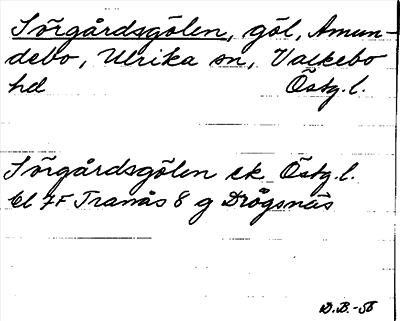 Sörgårdsgölen, göl, Amun-
debo, Ulrika sn, Valkebo
hd Östg.l.
Sörgårdsgölen ek Östg.l.
bl 7F Tranås 8 g Drögsnäs
D.B.-56